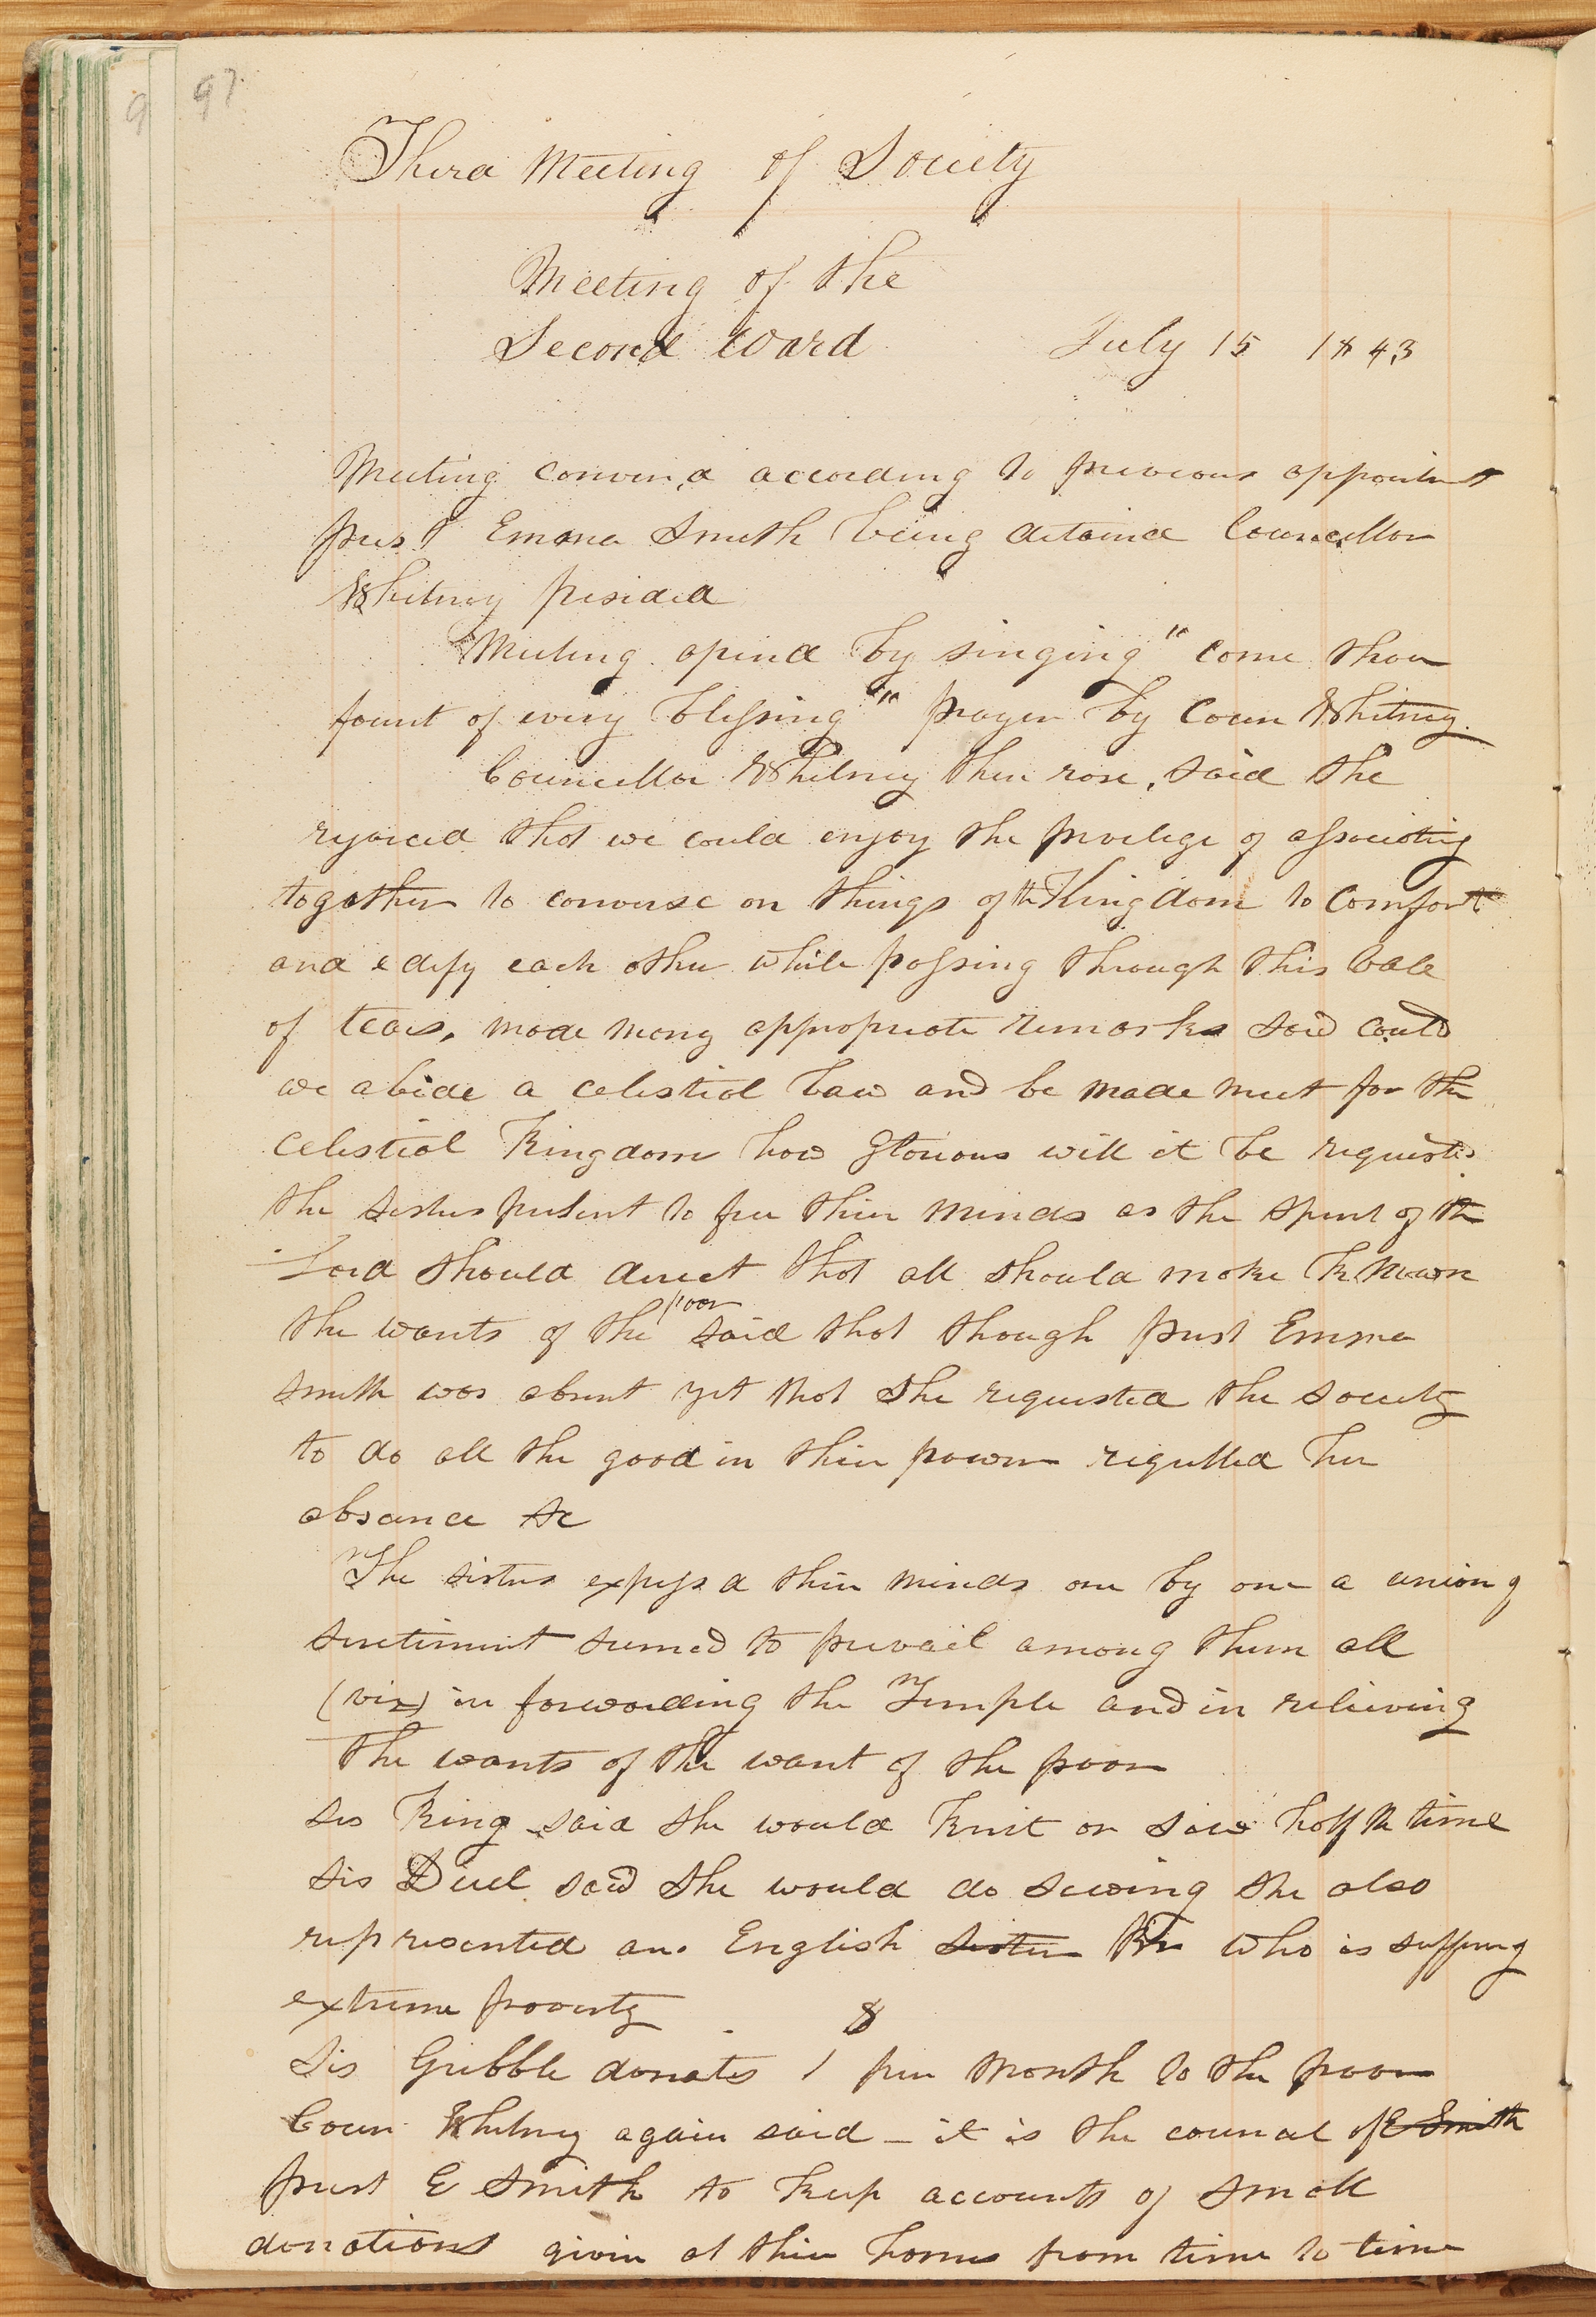 97
Third Meeting of Society
Meeting of the
Second Ward July 15 1843
Meeting conven,d according to previous appointmt
prest Emma Smith being detaind Councellor
Whitney presided
Meeting opend by singing "come thou
fount of every blessing" prayer by Coun Whitney.
Councellor Whitney then rose, said she
rejoiced that we could enjoy the privilege of associating
together to converse on things of the Kingdom to comfort
and edify each other while passing through this vale
of tears, made many appropriate remarks said could
we abide a celestial law and be made meet for the
celestial Kingdom how glorious will it be requested
the sisters present to free their minds as the spirit of the
Lord should direct that all should make known
the wants of the poor said that though prest Emma
Smith was absent yet that she requested the society
to do all the good in their power regretted her
absance &c
The sisters expressd their minds one by one a union of
sentiment seemed to prevail among them all
(viz) in forwarding the Temple and in relieving
the wants of the want of the poor
sis King said she would knit or sew half the time
sis Duel said she would do sewing she also
represented an English sister Br who is suffering
extreme poverty
Sis Gribble donates 1 $ per month to the poor
Coun Whitney again said - it is the councel of E Smith
prest E Smith to keep accounts of small
donations given at their homes from time to time